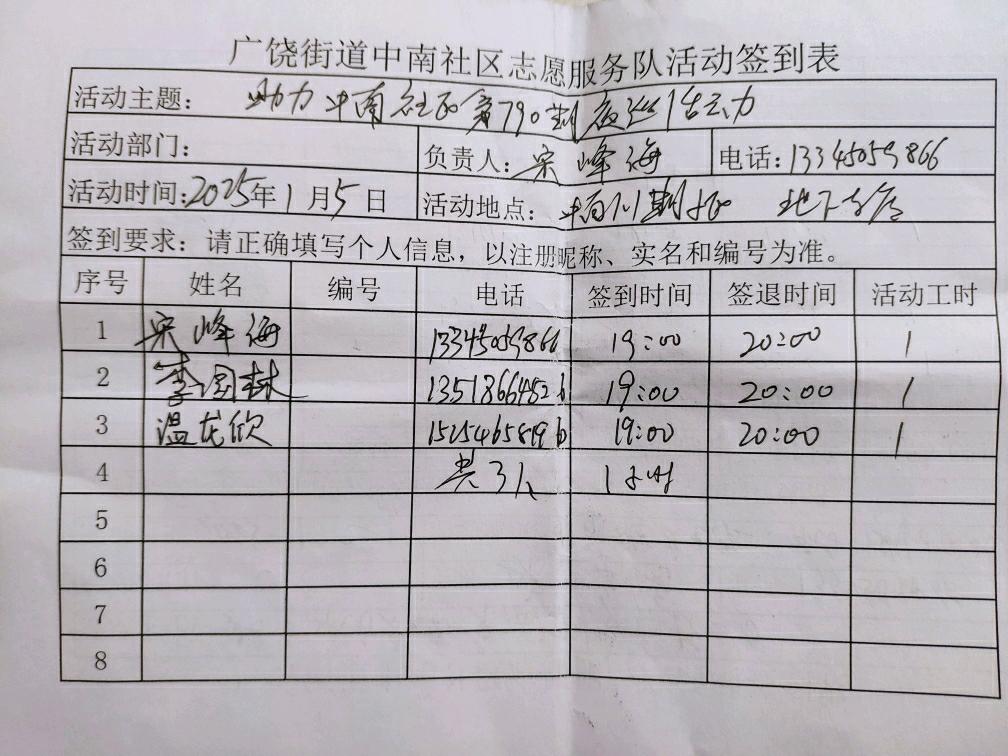 广饶街道中南社区志愿服务队活动签到表
活动主题： 助力中南社区第790期夜巡活动
活动部门： 负责人：宋峰海 电话：13345059866
活动时间：2025年1月5日 活动地点： 地下
签到要求：请正确填写个人信息，以注册昵称、实名和编号为准。
序号 姓名 编号 电话 签到时间 签退时间 活动工时
1 宋峰海 13345059866 19:00 20:00 1
2 李国林 13518664826 19:00 20:00 1
3 温龙欣 19:00 20:00 1
4 共3人 1小时
5
6
7
8